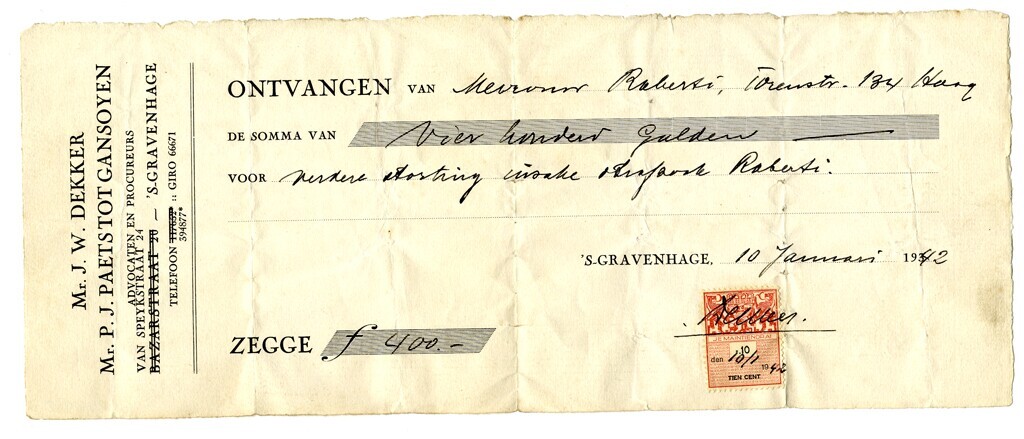 Mr. J. W. DEKKER
Mr. P. J. PAETS TOT GANSOYEN
ADVOCATEN EN PROCUREURS
VAN SPEYKSTRAAT 24
BAZARSTRAAT 20 — 'S-GRAVENHAGE
TELEFOON 117652 :: GIRO 66671
394877*
ONTVANGEN VAN Mevrouw Roberti, Torenstr. 134 Haag
DE SOMMA VAN Vier honderd Gulden —
VOOR verdere storting inzake strafzaak Roberti.
'S-GRAVENHAGE, 10 Januari 1942
JE MAINTIENDRAI
ZEGGE f 400.-
10
den 10/1 1942
TIEN CENT